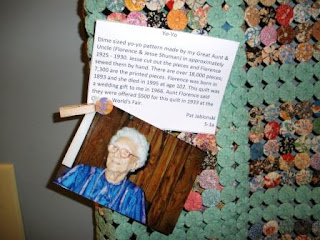 Yo-Yo
Dime sized yo-yo pattern made by my Great Aunt &
Uncle (Florence & Jesse Shuman) in approximately
1925 - 1930. Jesse cut out the pieces and Florence
sewed them by hand. There are over 18,000 pieces,
7,500 are the printed pieces. Florence was born in
1893 and she died in 1995 at age 102. This quilt was
a wedding gift to me in 1968. Aunt Florence said
they were offered $500 for this quilt in 1933 at the
World's Fair.
Pat Jablonski